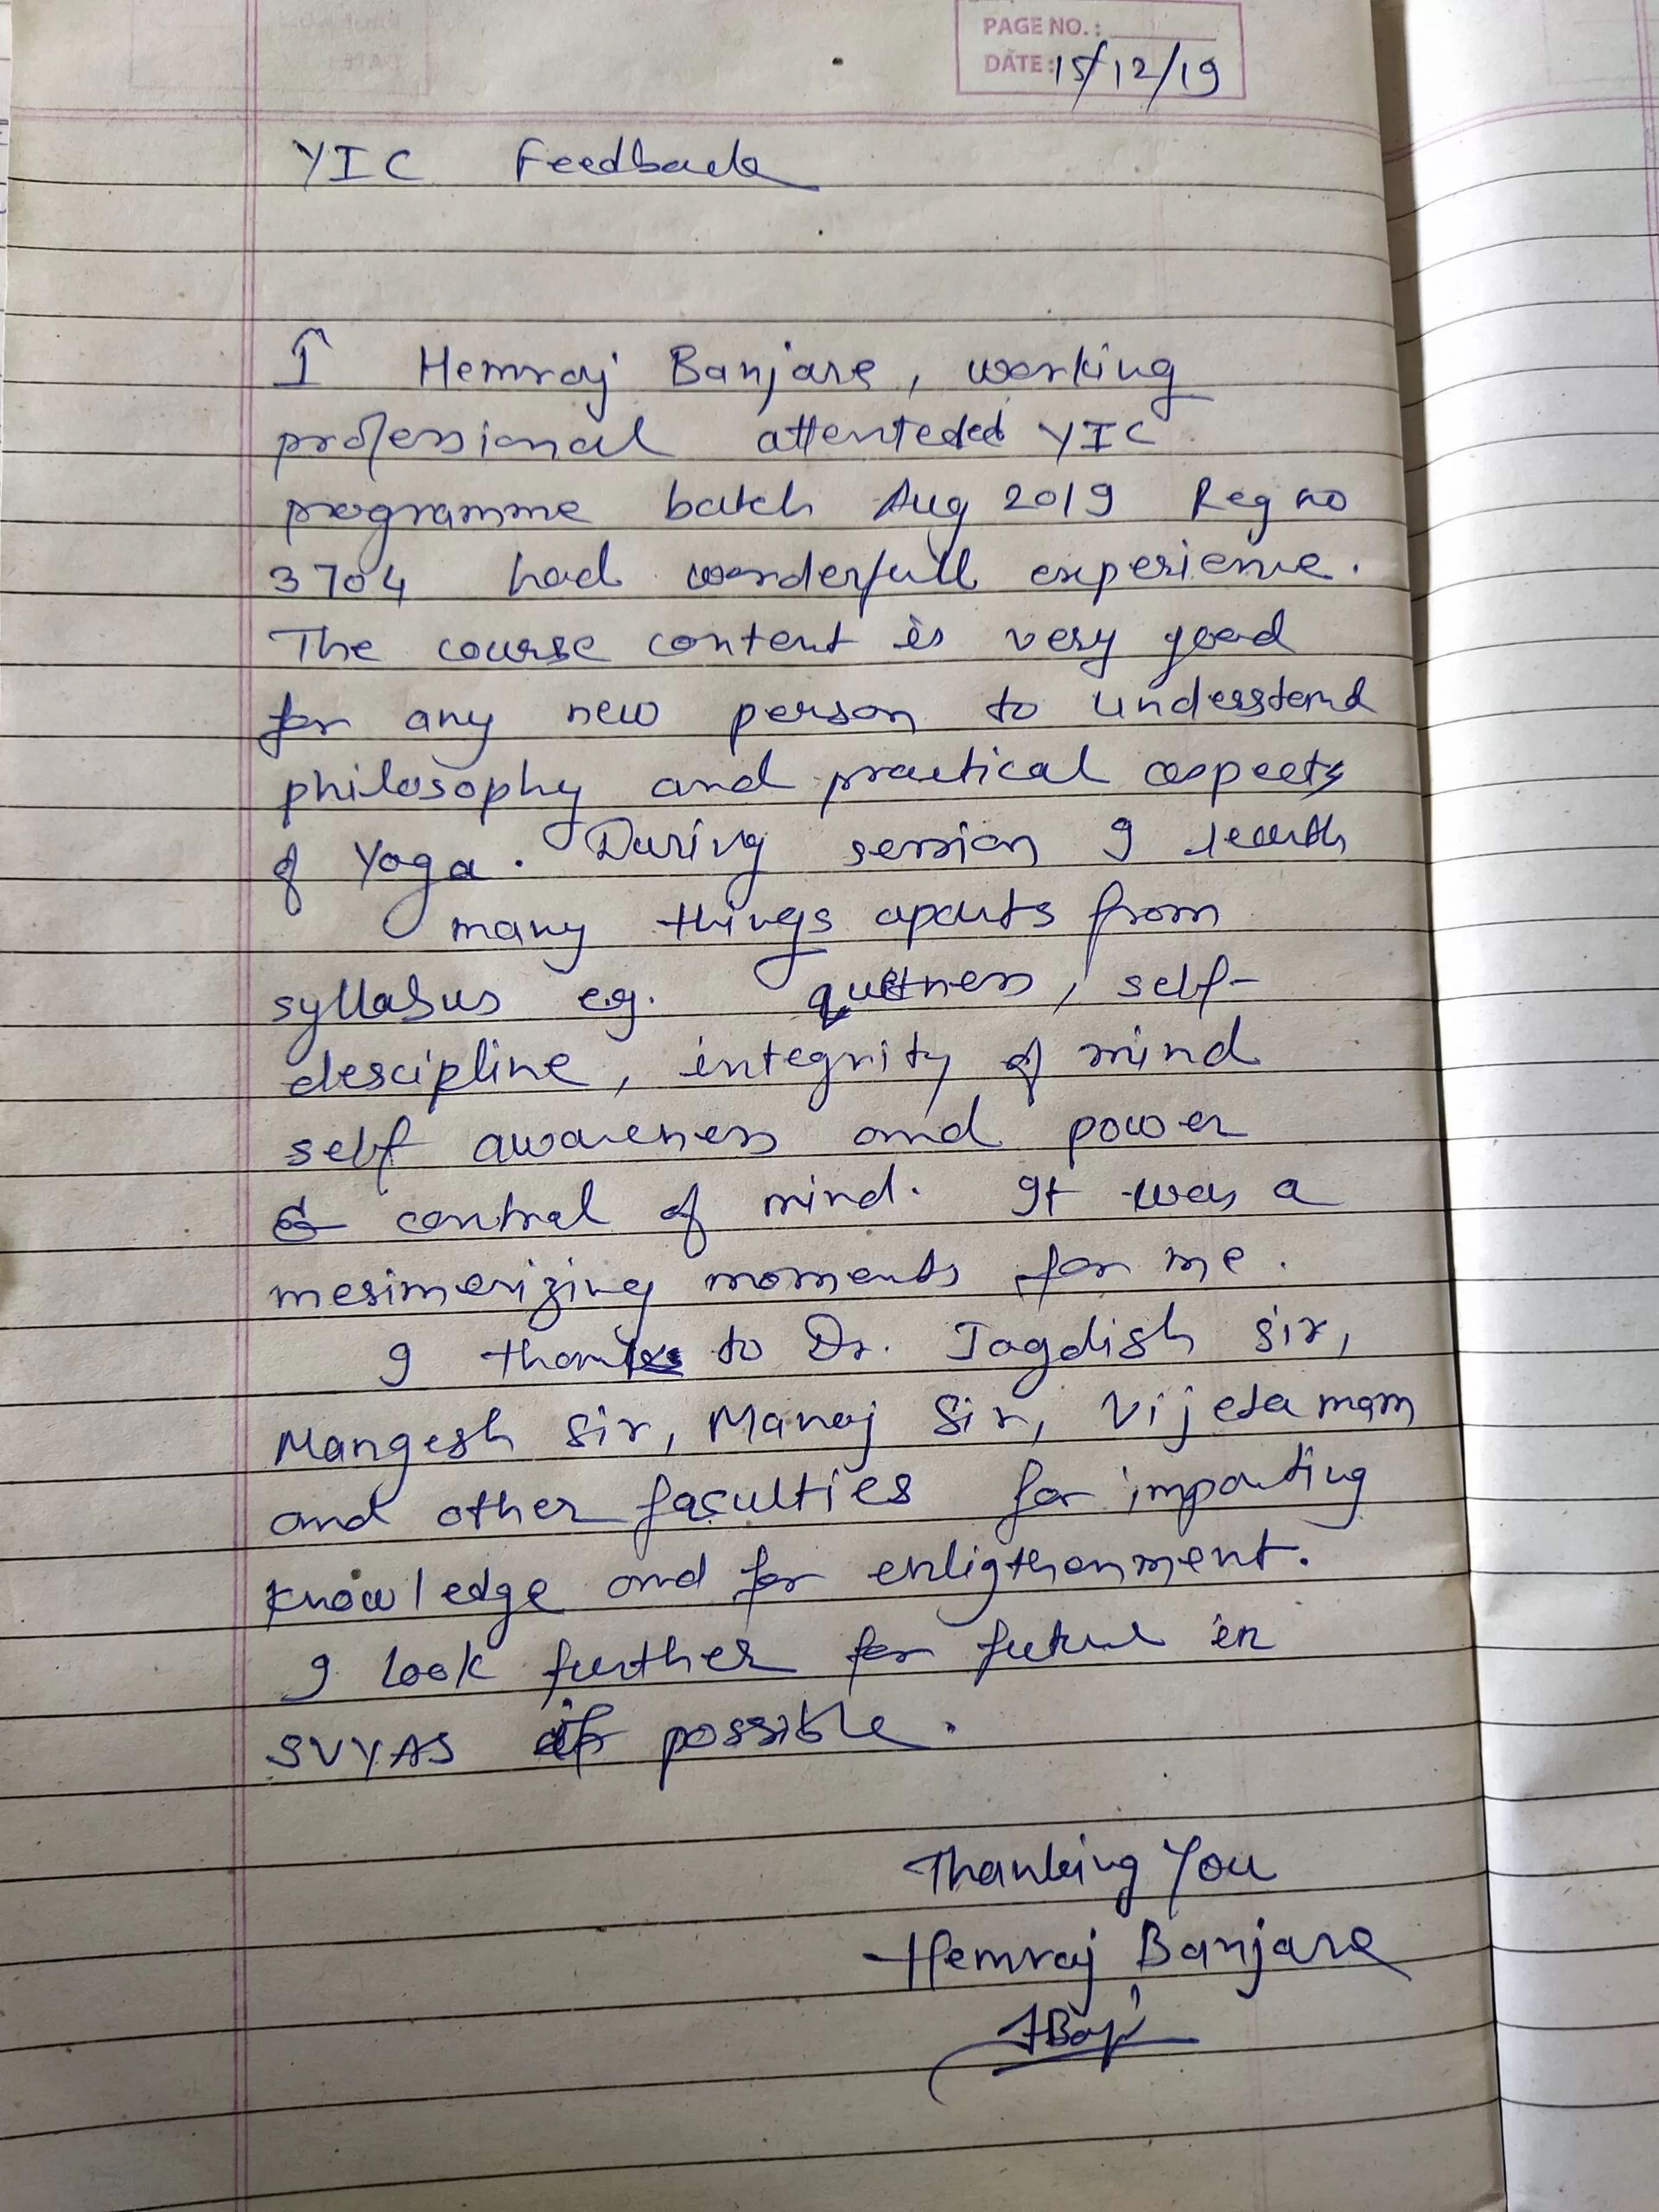 PAGE NO. :
DATE: 15/12/19
YIC Feedback
I Hemraj Banjare, working
professional attenteded YIC
programme batch Aug 2019 Reg no
3704 had wonderfull experience.
The course content is very good
for any new person to understand
philosophy and practical aspects
of Yoga. During session I
many things aparts from
syllabus e.g. quitness, self-
descipline, integrity of mind
self awareness and power
& control of mind. It was a
mesimerizing moments for me.
I thanks to Dr. Jagdish sir,
Mangesh Sir, Manoj Sir, Vijeta mam
and other faculties for imparting
knowledge and for enligthenment.
I look further for future in
SVYAS if possible.
Thanking You
Hemraj Banjare